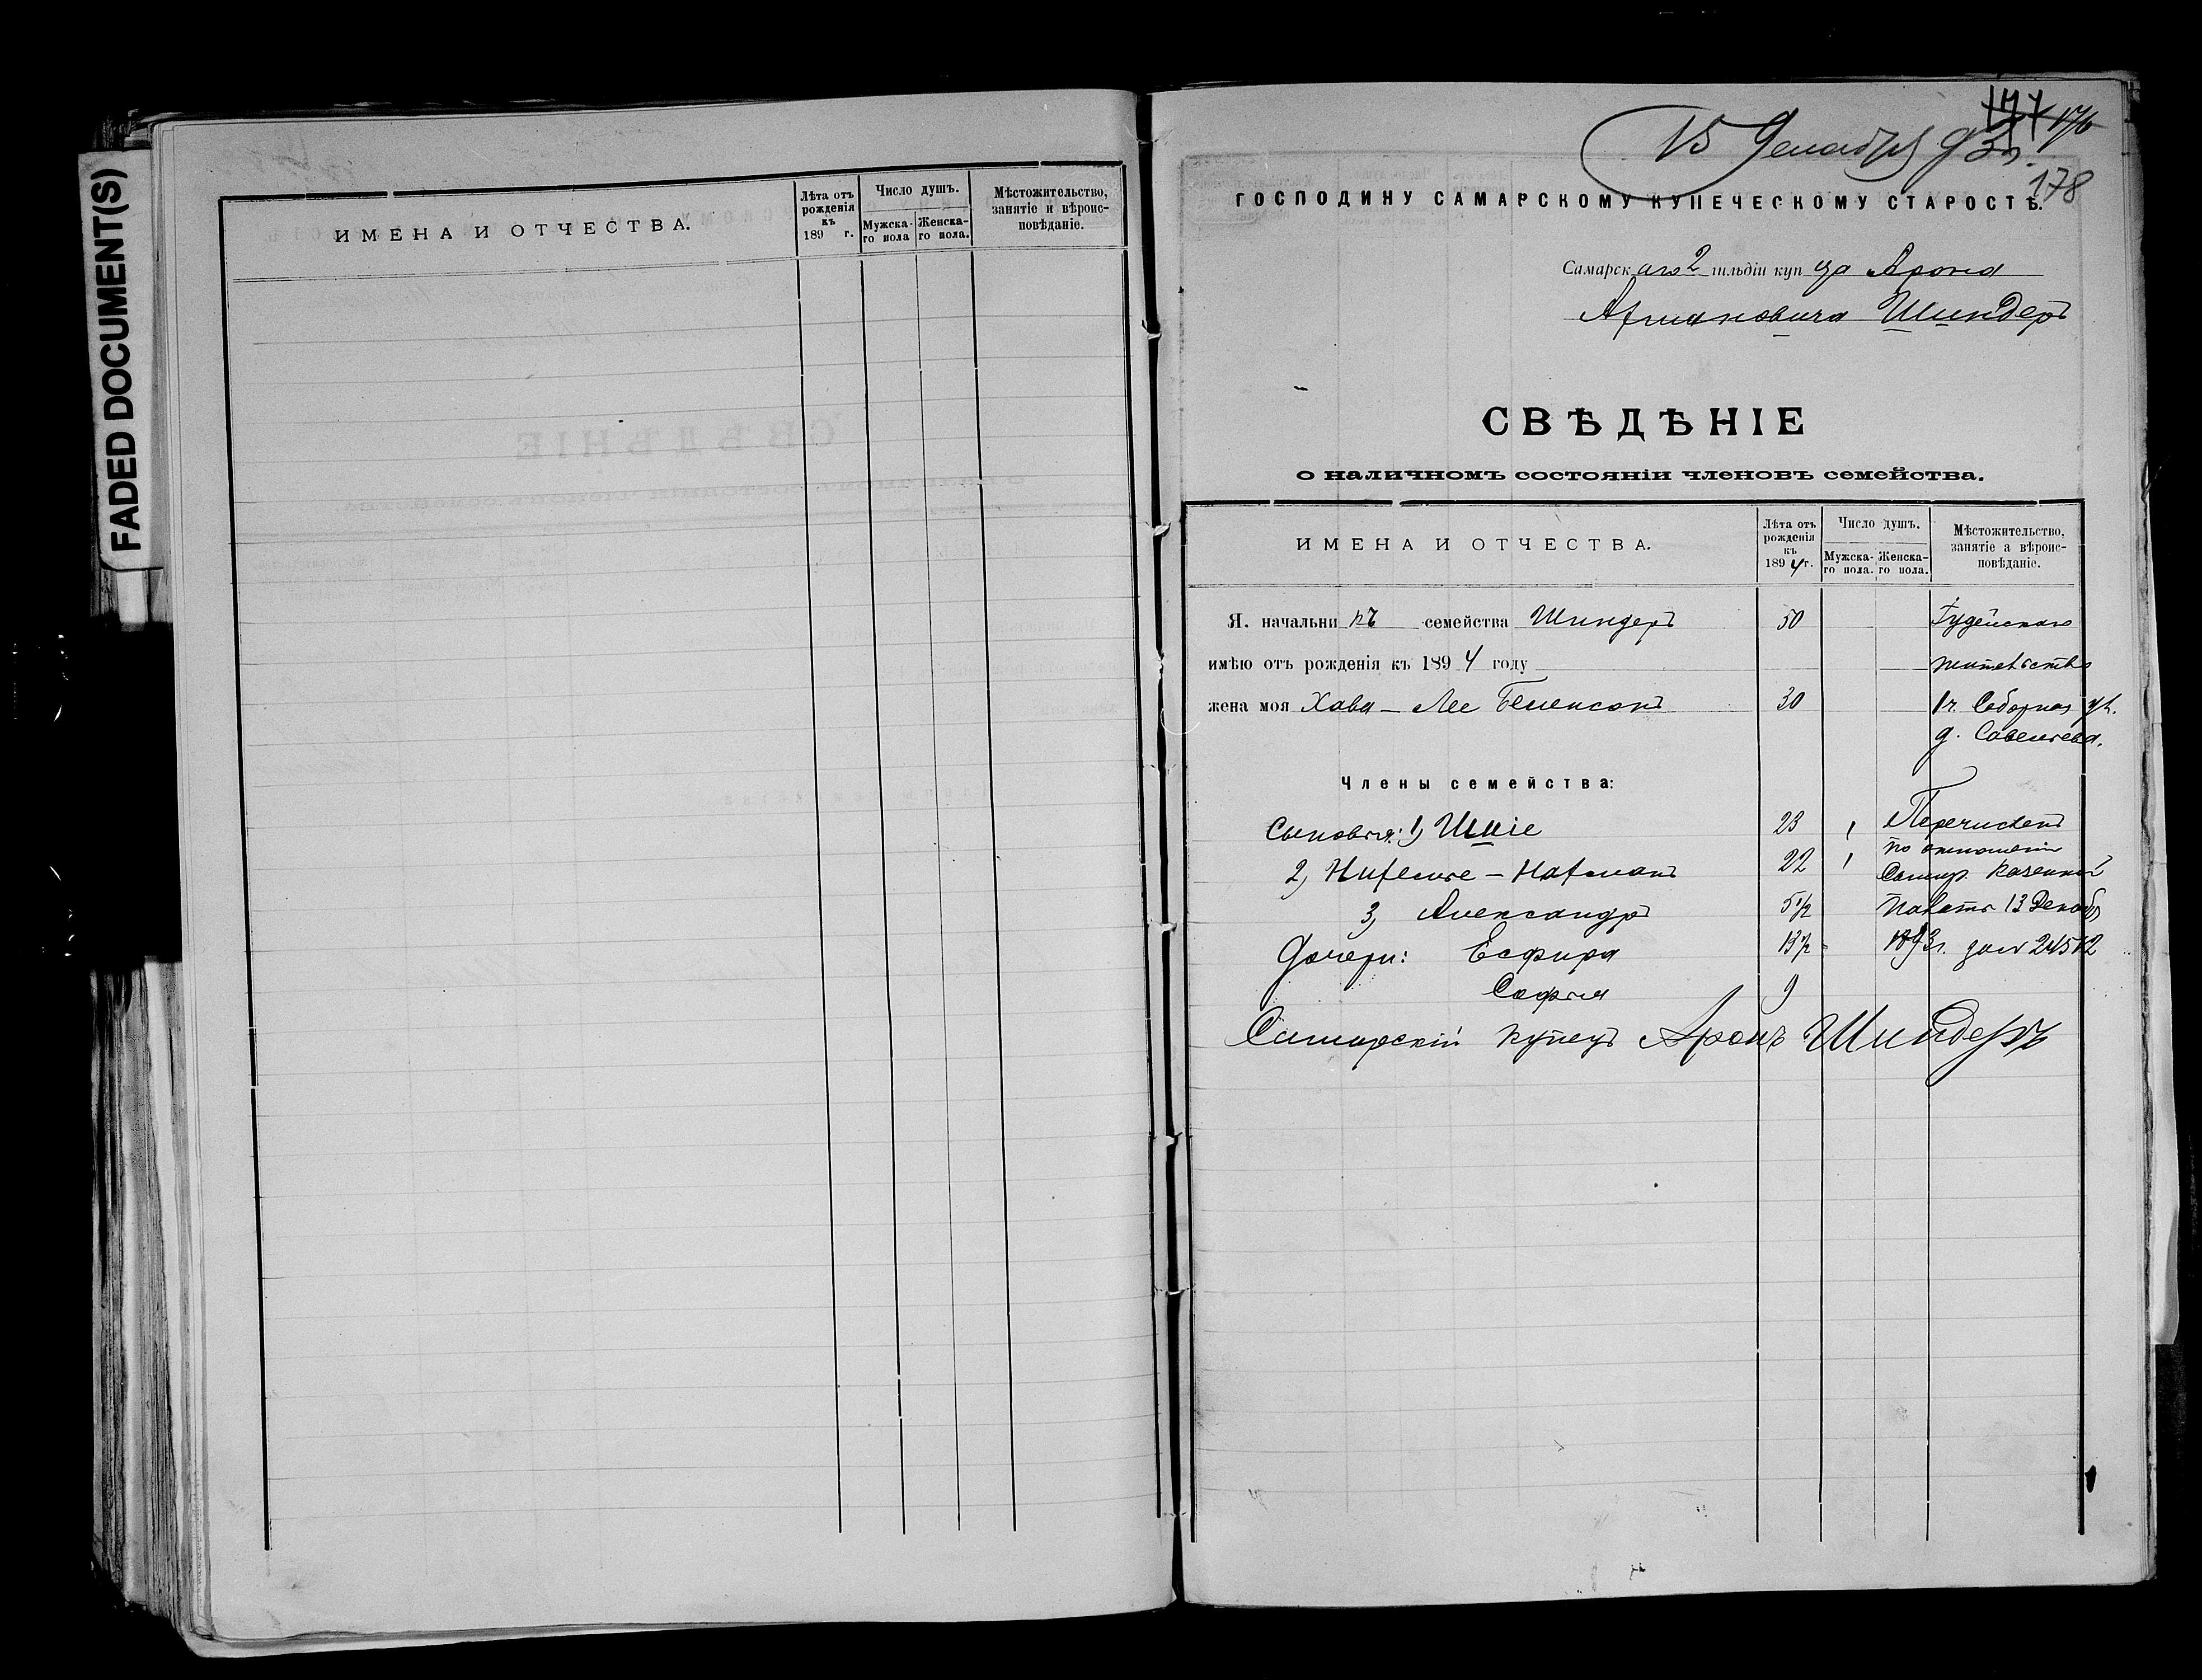 FADED DOCUMENT(S)
ИМЕНА И ОТЧЕСТВА.
Лѣта отъ рожденія къ 189 г.
Число душъ.
Мужска-го пола
Женска-го пола.
Мѣстожительство, занятіе и вѣроис-повѣданіе.
177 176
15 Декабря 93 г.
178
ГОСПОДИНУ САМАРСКОМУ КУПЕЧЕСКОМУ СТАРОСТѢ.
Самарскаго 2 гильдіи купца Арона
Шиндеръ
СВѢДѢНІЕ
о наличномъ состояніи членовъ семейства.
ИМЕНА И ОТЧЕСТВА.
Лѣта отъ рожденія къ 1894 г.
Число душъ.
Мужска-го пола.
Женска-го пола.
Мѣстожительство, занятіе а вѣроис-повѣданіе.
Я, начальникъ семейства Шиндеръ 50 Іудейскаго
имѣю отъ рожденія къ 1894 году жительство
жена моя Хава - Лее 30 1 ч. Соборная ул.
д. Савельева.
Члены семейства:
Сыновья: 1) 23 1 Перечисленъ
по отношенію
2) 22 1 Самар. Казенной
3) Александръ 5 1/2 Палаты 13 Декабр
Дочери: Есфира 13 1/2 1893 г. за № 24512
Софья 9
Самарскій купецъ Аронъ Шиндеръ